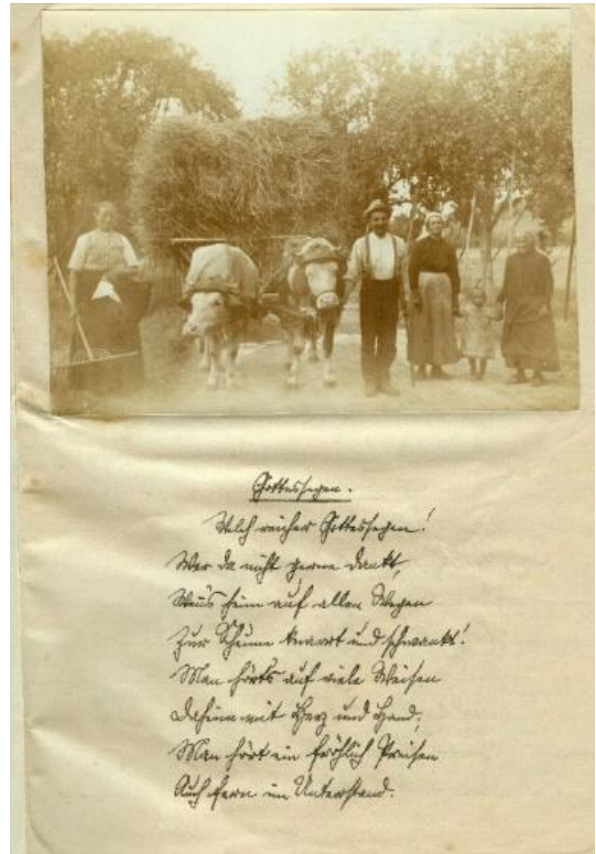 Gottessegen.
Welch reicher Gottessegen!
Wer da nicht gerne dankt,
Wenn's heim auf allen Wegen
Zur Scheune knarrt und schwankt!
Man hört's auf viele Weisen
Daheim mit Herz und Hand;
Man hört ein fröhlich Preisen
Auch fern im Unterstand.